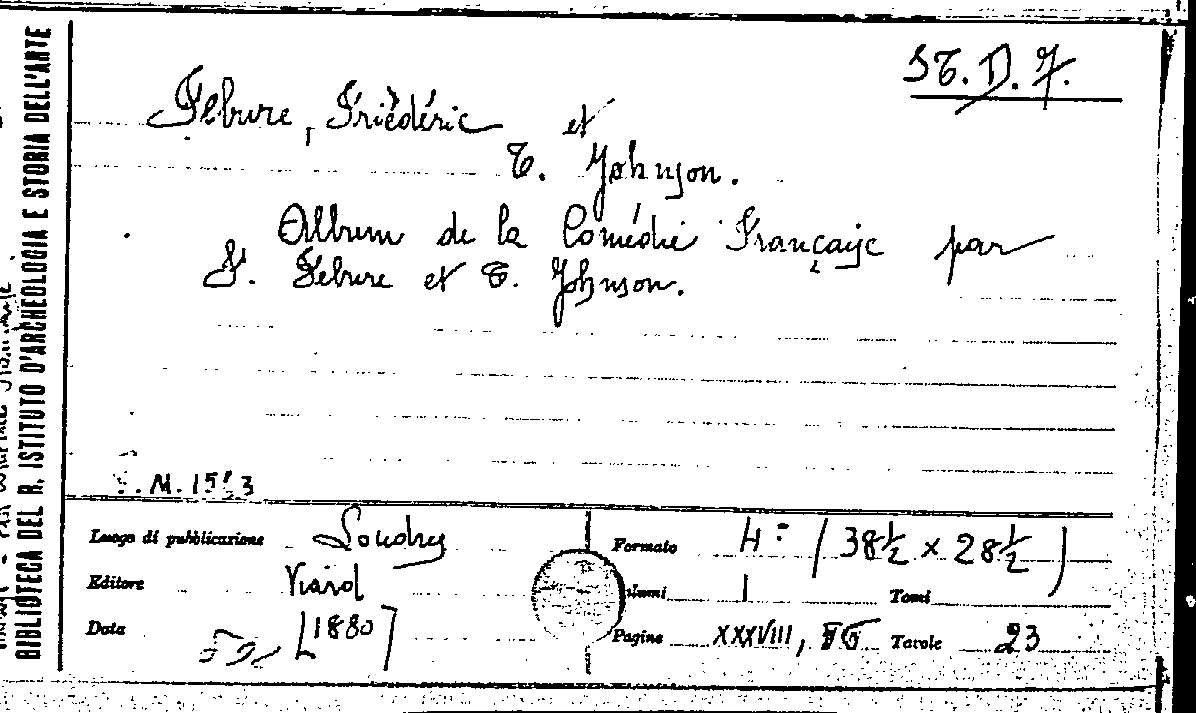 ST. D. 7.
Febvre, Friédéric et
T. Johnson.
Album de la Comédie Française par
F. Febvre et T. Johnson.
M. 15
BIBLIOTECA DEL R. ISTITUTO D'ARCHEOLOGIA E STORIA DELL'ARTE
Luogo di pubblicazione Londres
Editore
Data [1880]
Formato 4° (38½ x 28½)
lumi 1 Tomi
Pagine XXXVIII, Tavole 23